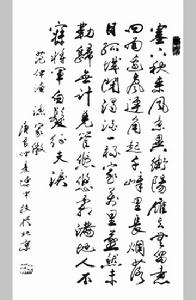 塞下秋来風景異衡陽雁去無留意
四面邊聲連角起千嶂裏長烟落
日孤城閉濁酒一杯家萬里燕然未
勒歸無計羌管悠悠霜滿地人不
寐將軍白髮征夫淚
范仲淹漁家傲